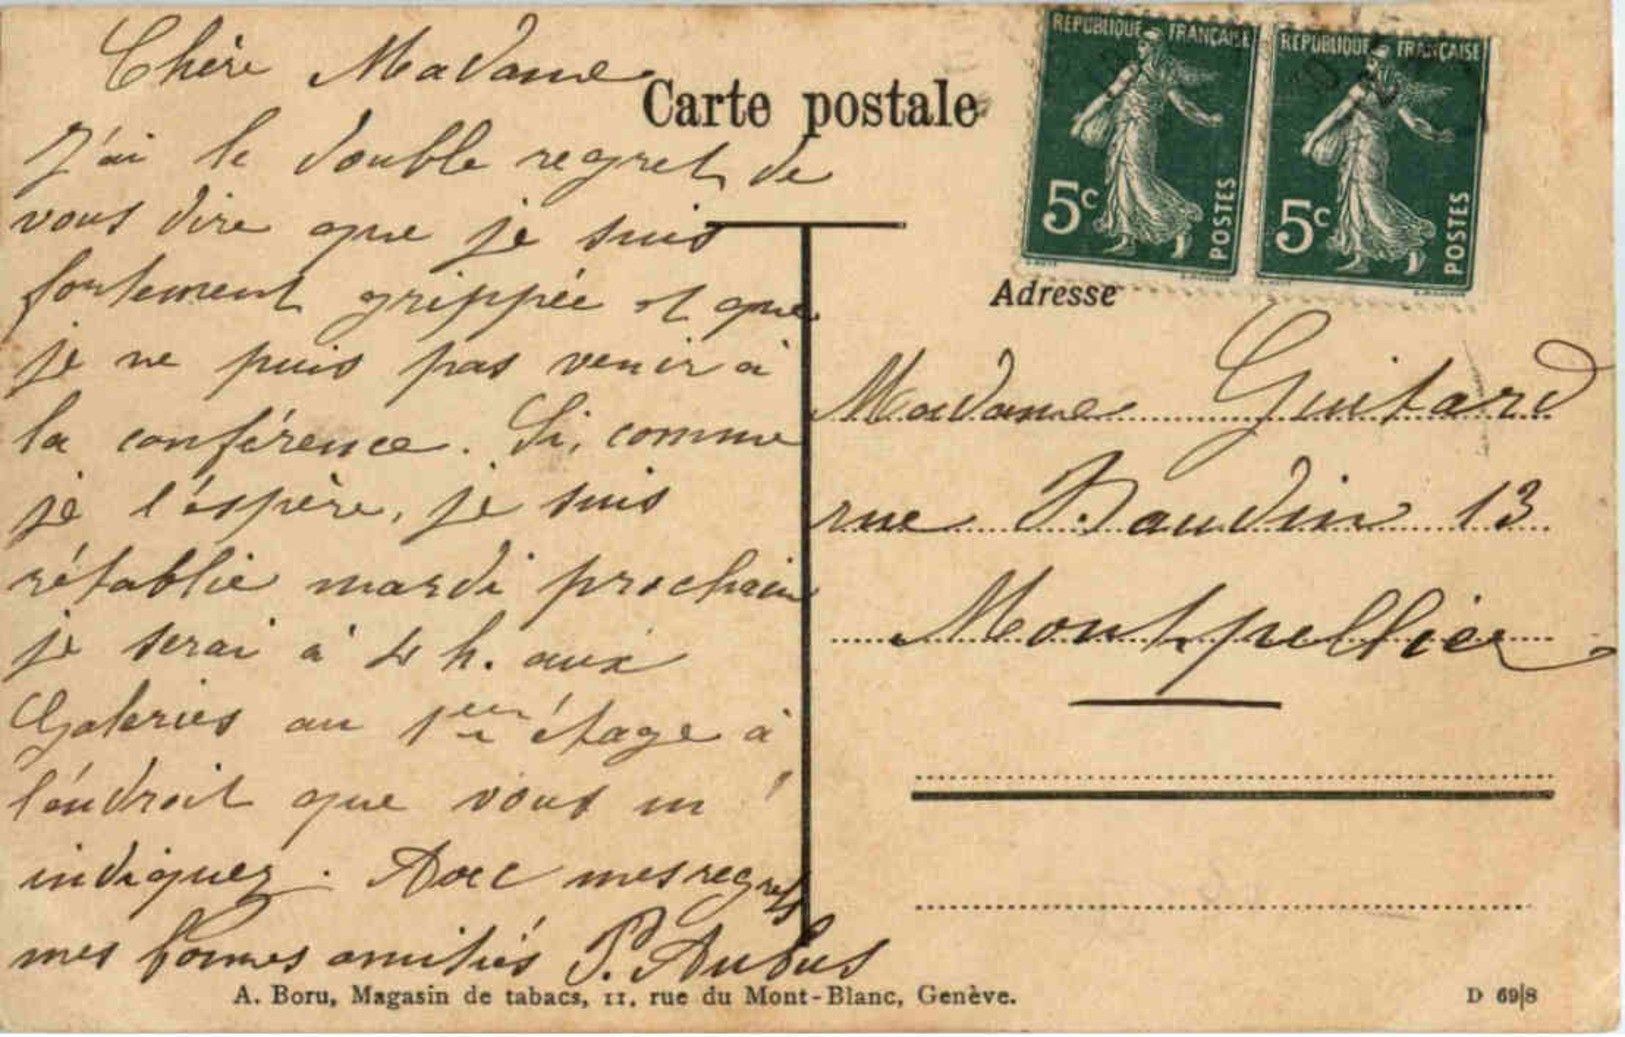 Chère Madame
J'ai le double regret de
vous dire que je suis
fortement grippée et que
je ne puis pas venir à
la conférence. Si, comme
je l'espère, je suis
rétablie mardi prochain
je serai à 4 h. aux
Galeries au 1er étage à
l'endroit que vous m'
indiquez. Avec mes regrets
mes bonnes amitiés P. Aubus
Carte postale
REPUBLIQUE FRANÇAISE
5c POSTES
REPUBLIQUE FRANÇAISE
5c POSTES
Adresse
Madame Guitard
rue Baudin 13
Montpellier
A. Boru, Magasin de tabacs, 11, rue du Mont-Blanc, Genève.
D 69|8